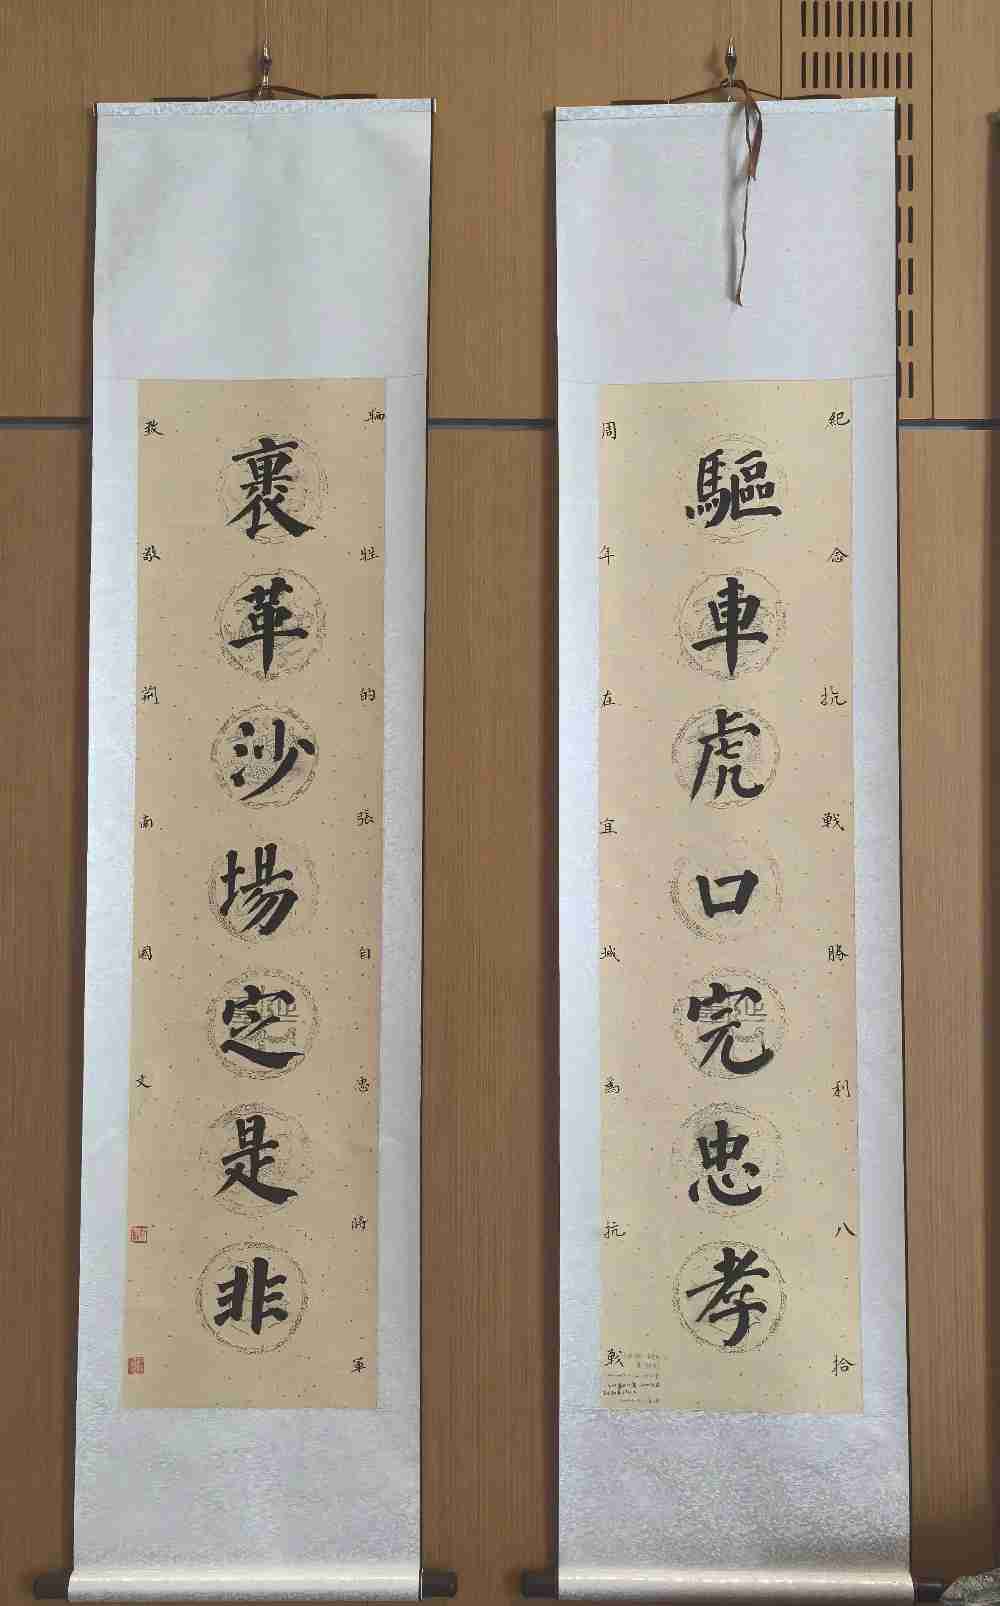 驅車虎口完忠孝
裹革沙場定是非
紀念抗戰勝利八拾
周年在宜城爲抗戰
犧牲的張自忠將軍
致敬荊南國文